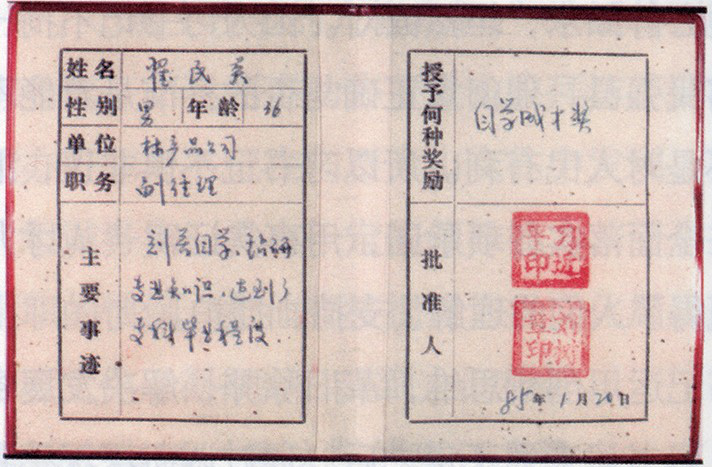 姓名 翟民英
性别 男 年龄 36
单位 林产品公司
职务 副经理
主要事迹
刻苦自学、钻研
专业知识，达到了
专科毕业程度
授予何种奖励
自学成才奖
批准人
习近平印
刘树章印
85年1月20日